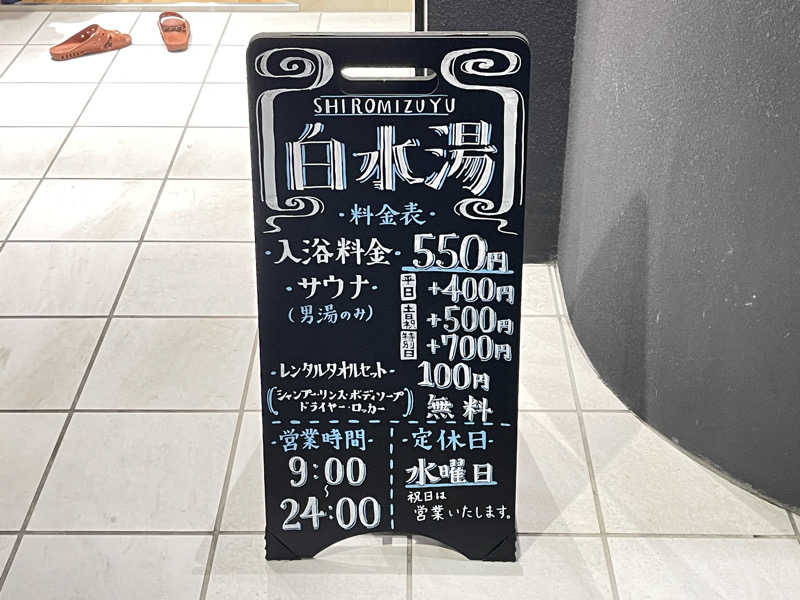 SHIROMIZUYU
白水湯
・料金表・
・入浴料金・ 550円
・サウナ・ 平日 +400円
(男湯のみ) 土日祝 +500円
特別日 +700円
・レンタルタオルセット・ 100円
(シャンプー・リンス・ボディソープ
ドライヤー・ロッカー) 無料
・営業時間・
9:00
~
24:00
・定休日・
水曜日
祝日は
営業いたします。